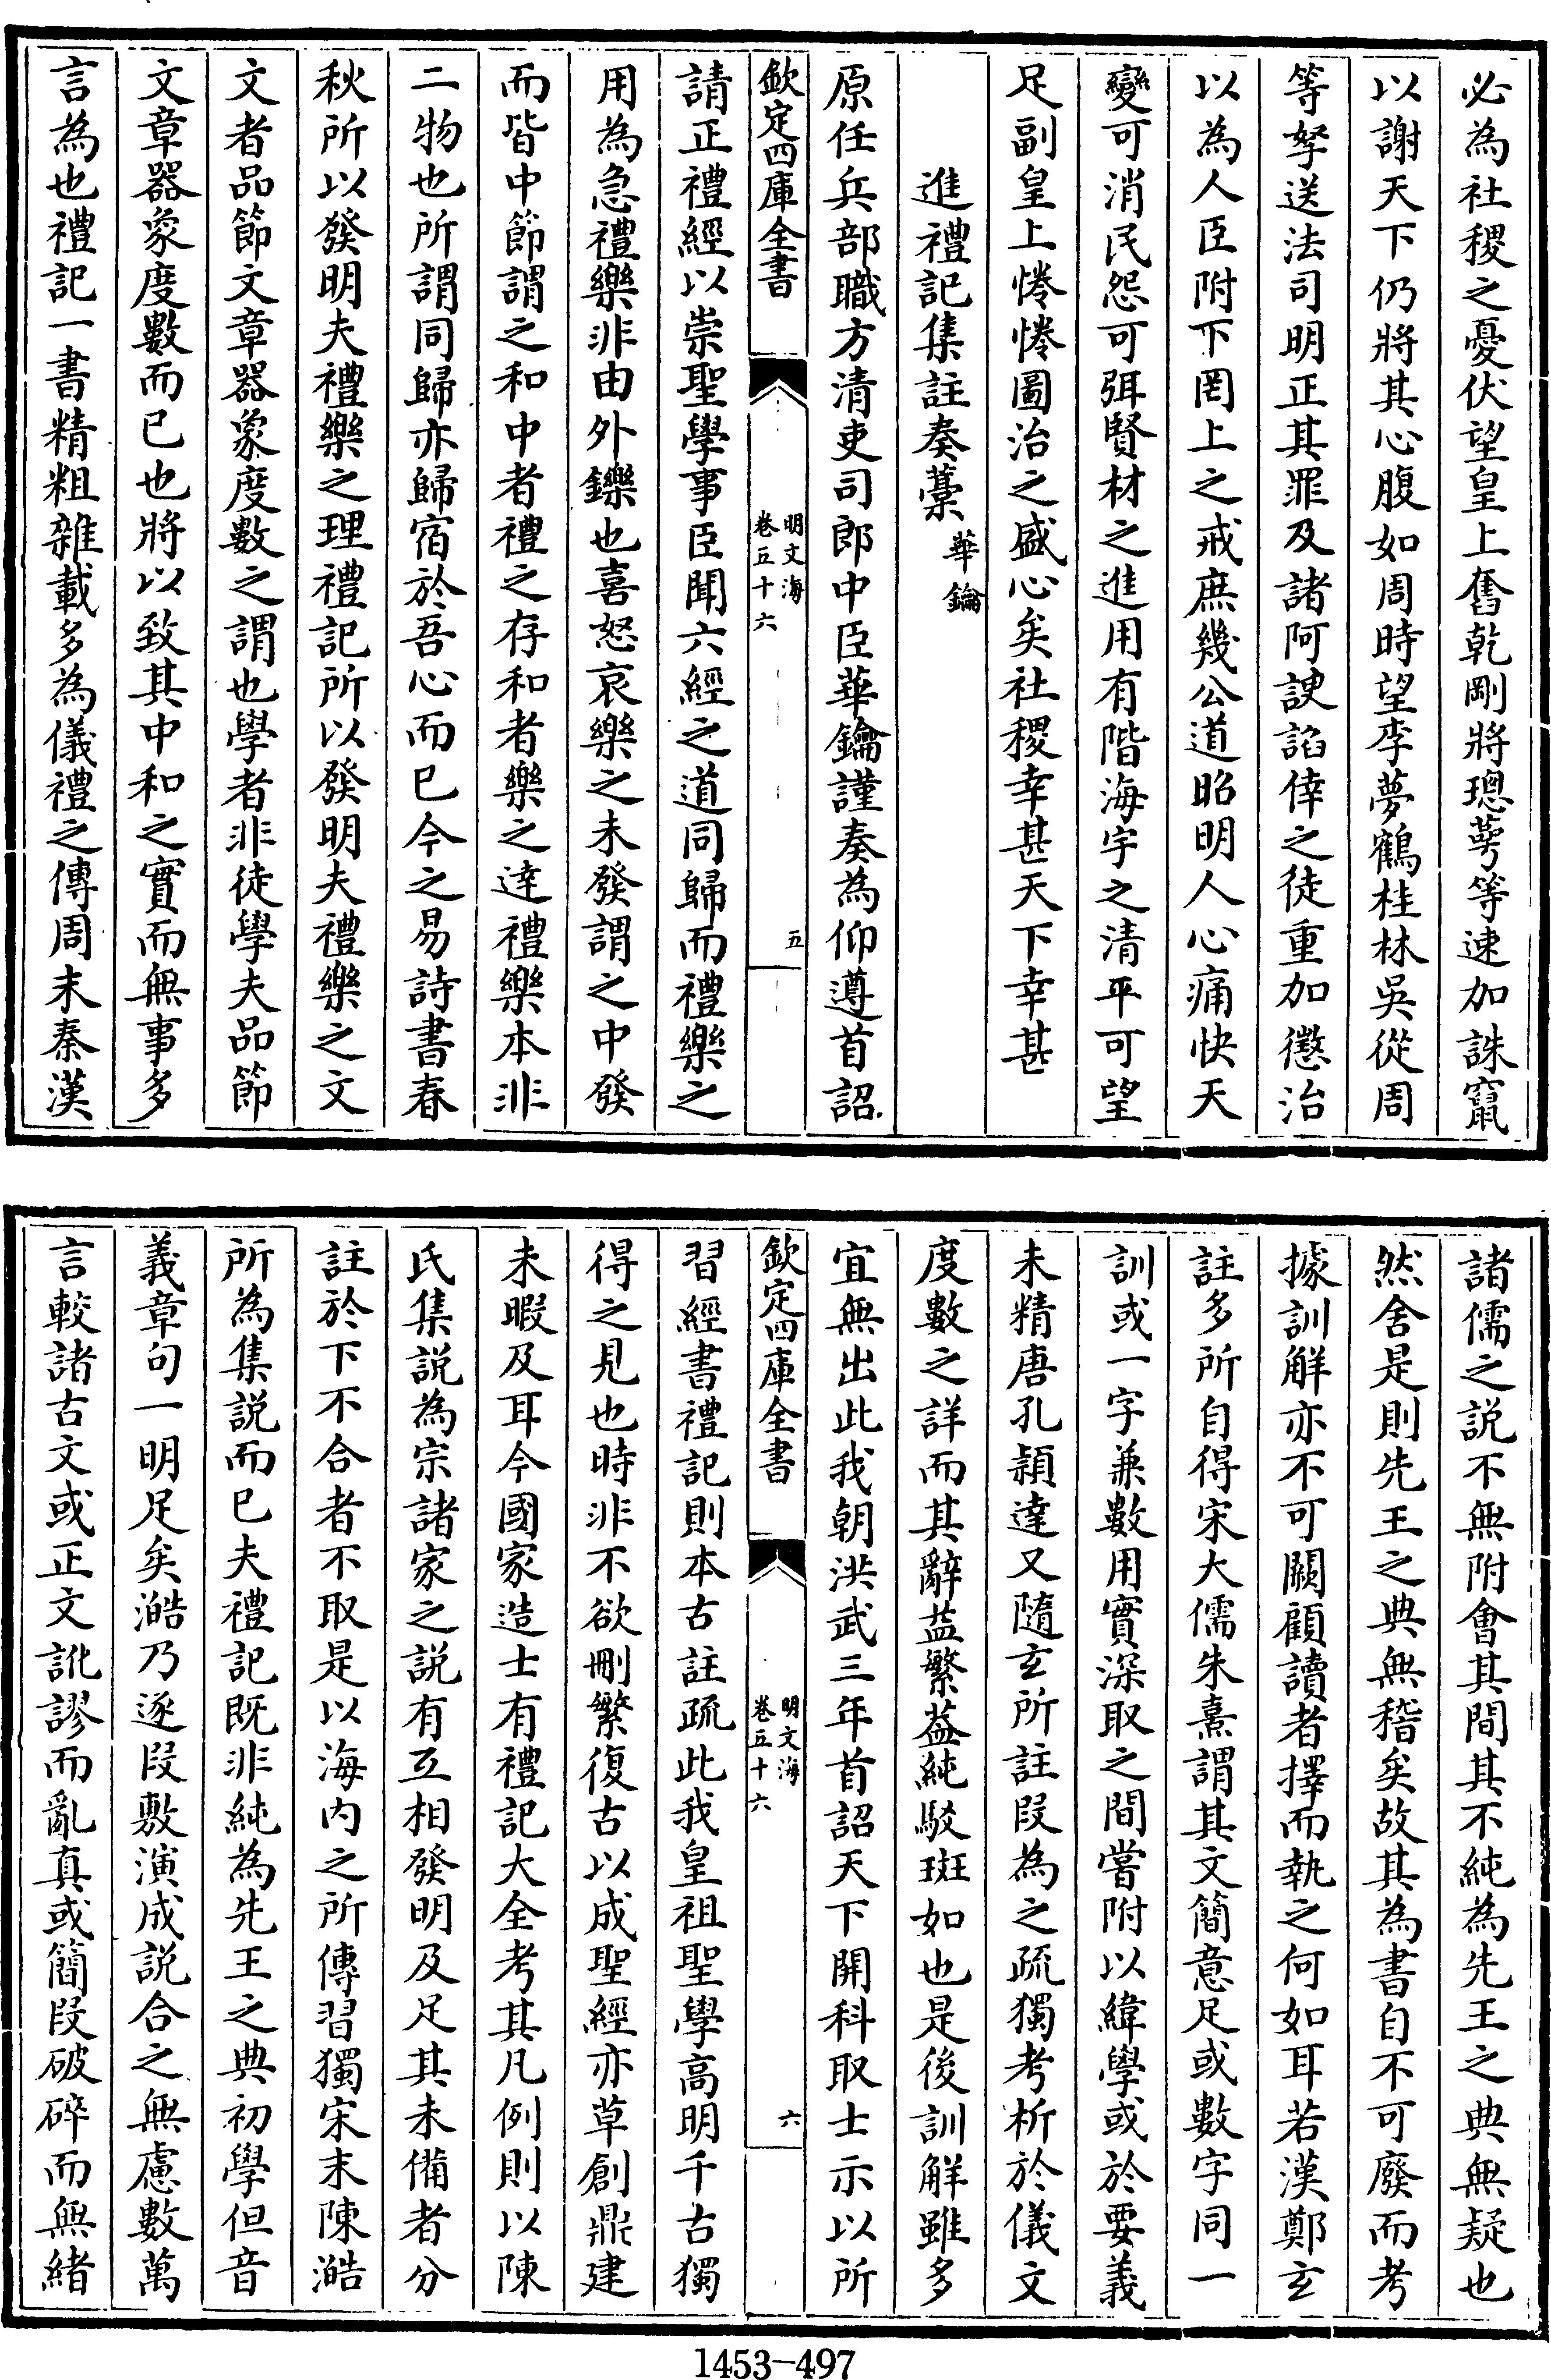 必為社稷之憂伏望皇上奮乾剛將璁蕚等速加誅竄
以謝天下仍將其心腹如周時望李夢鶴桂林吳從周
等拏送法司明正其罪及諸阿諛諂倖之徒重加懲治
以為人臣附下罔上之戒庶幾公道昭明人心痛快天
變可消民怨可弭賢材之進用有階海宇之清平可望
足副皇上惓惓圖治之盛心矣社稷幸甚天下幸甚
進禮記集註奏藁 華鑰
原任兵部職方清吏司郎中臣華鑰謹奏為仰遵首詔
欽定四庫全書 明文海 卷五十六 五
請正禮經以崇聖學事臣聞六經之道同歸而禮樂之
用為急禮樂非由外鑠也喜怒哀樂之未發謂之中發
而皆中節謂之和中者禮之存和者樂之達禮樂本非
二物也所謂同歸亦歸宿於吾心而已今之易詩書春
秋所以發明夫禮樂之理禮記所以發明夫禮樂之文
文者品節文章器象度數之謂也學者非徒學夫品節
文章器象度數而已也將以致其中和之實而無事多
言為也禮記一書精粗雜載多為儀禮之傳周末秦漢
諸儒之説不無附會其間其不純為先王之典無疑也
然舍是則先王之典無稽矣故其為書自不可廢而考
據訓解亦不可闕顧讀者擇而執之何如耳若漢鄭玄
註多所自得宋大儒朱熹謂其文簡意足或數字同一
訓或一字兼數用實深取之間嘗附以緯學或於要義
未精唐孔穎達又隨玄所註段為之疏獨考析於儀文
度數之詳而其辭益繁益純駁斑如也是後訓解雖多
宜無出此我朝洪武三年首詔天下開科取士示以所
欽定四庫全書 明文海 卷五十六 六
習經書禮記則本古註疏此我皇祖聖學高明千古獨
得之見也時非不欲刪繁復古以成聖經亦草創鼎建
未暇及耳今國家造士有禮記大全考其凡例則以陳
氏集説為宗諸家之説有互相發明及足其未備者分
註於下不合者不取是以海内之所傳習獨宋末陳澔
所為集説而已夫禮記既非純為先王之典初學但音
義章句一明足矣澔乃逐段敷演成説合之無慮數萬
言較諸古文或正文訛謬而亂真或簡段破碎而無緒
1453-497